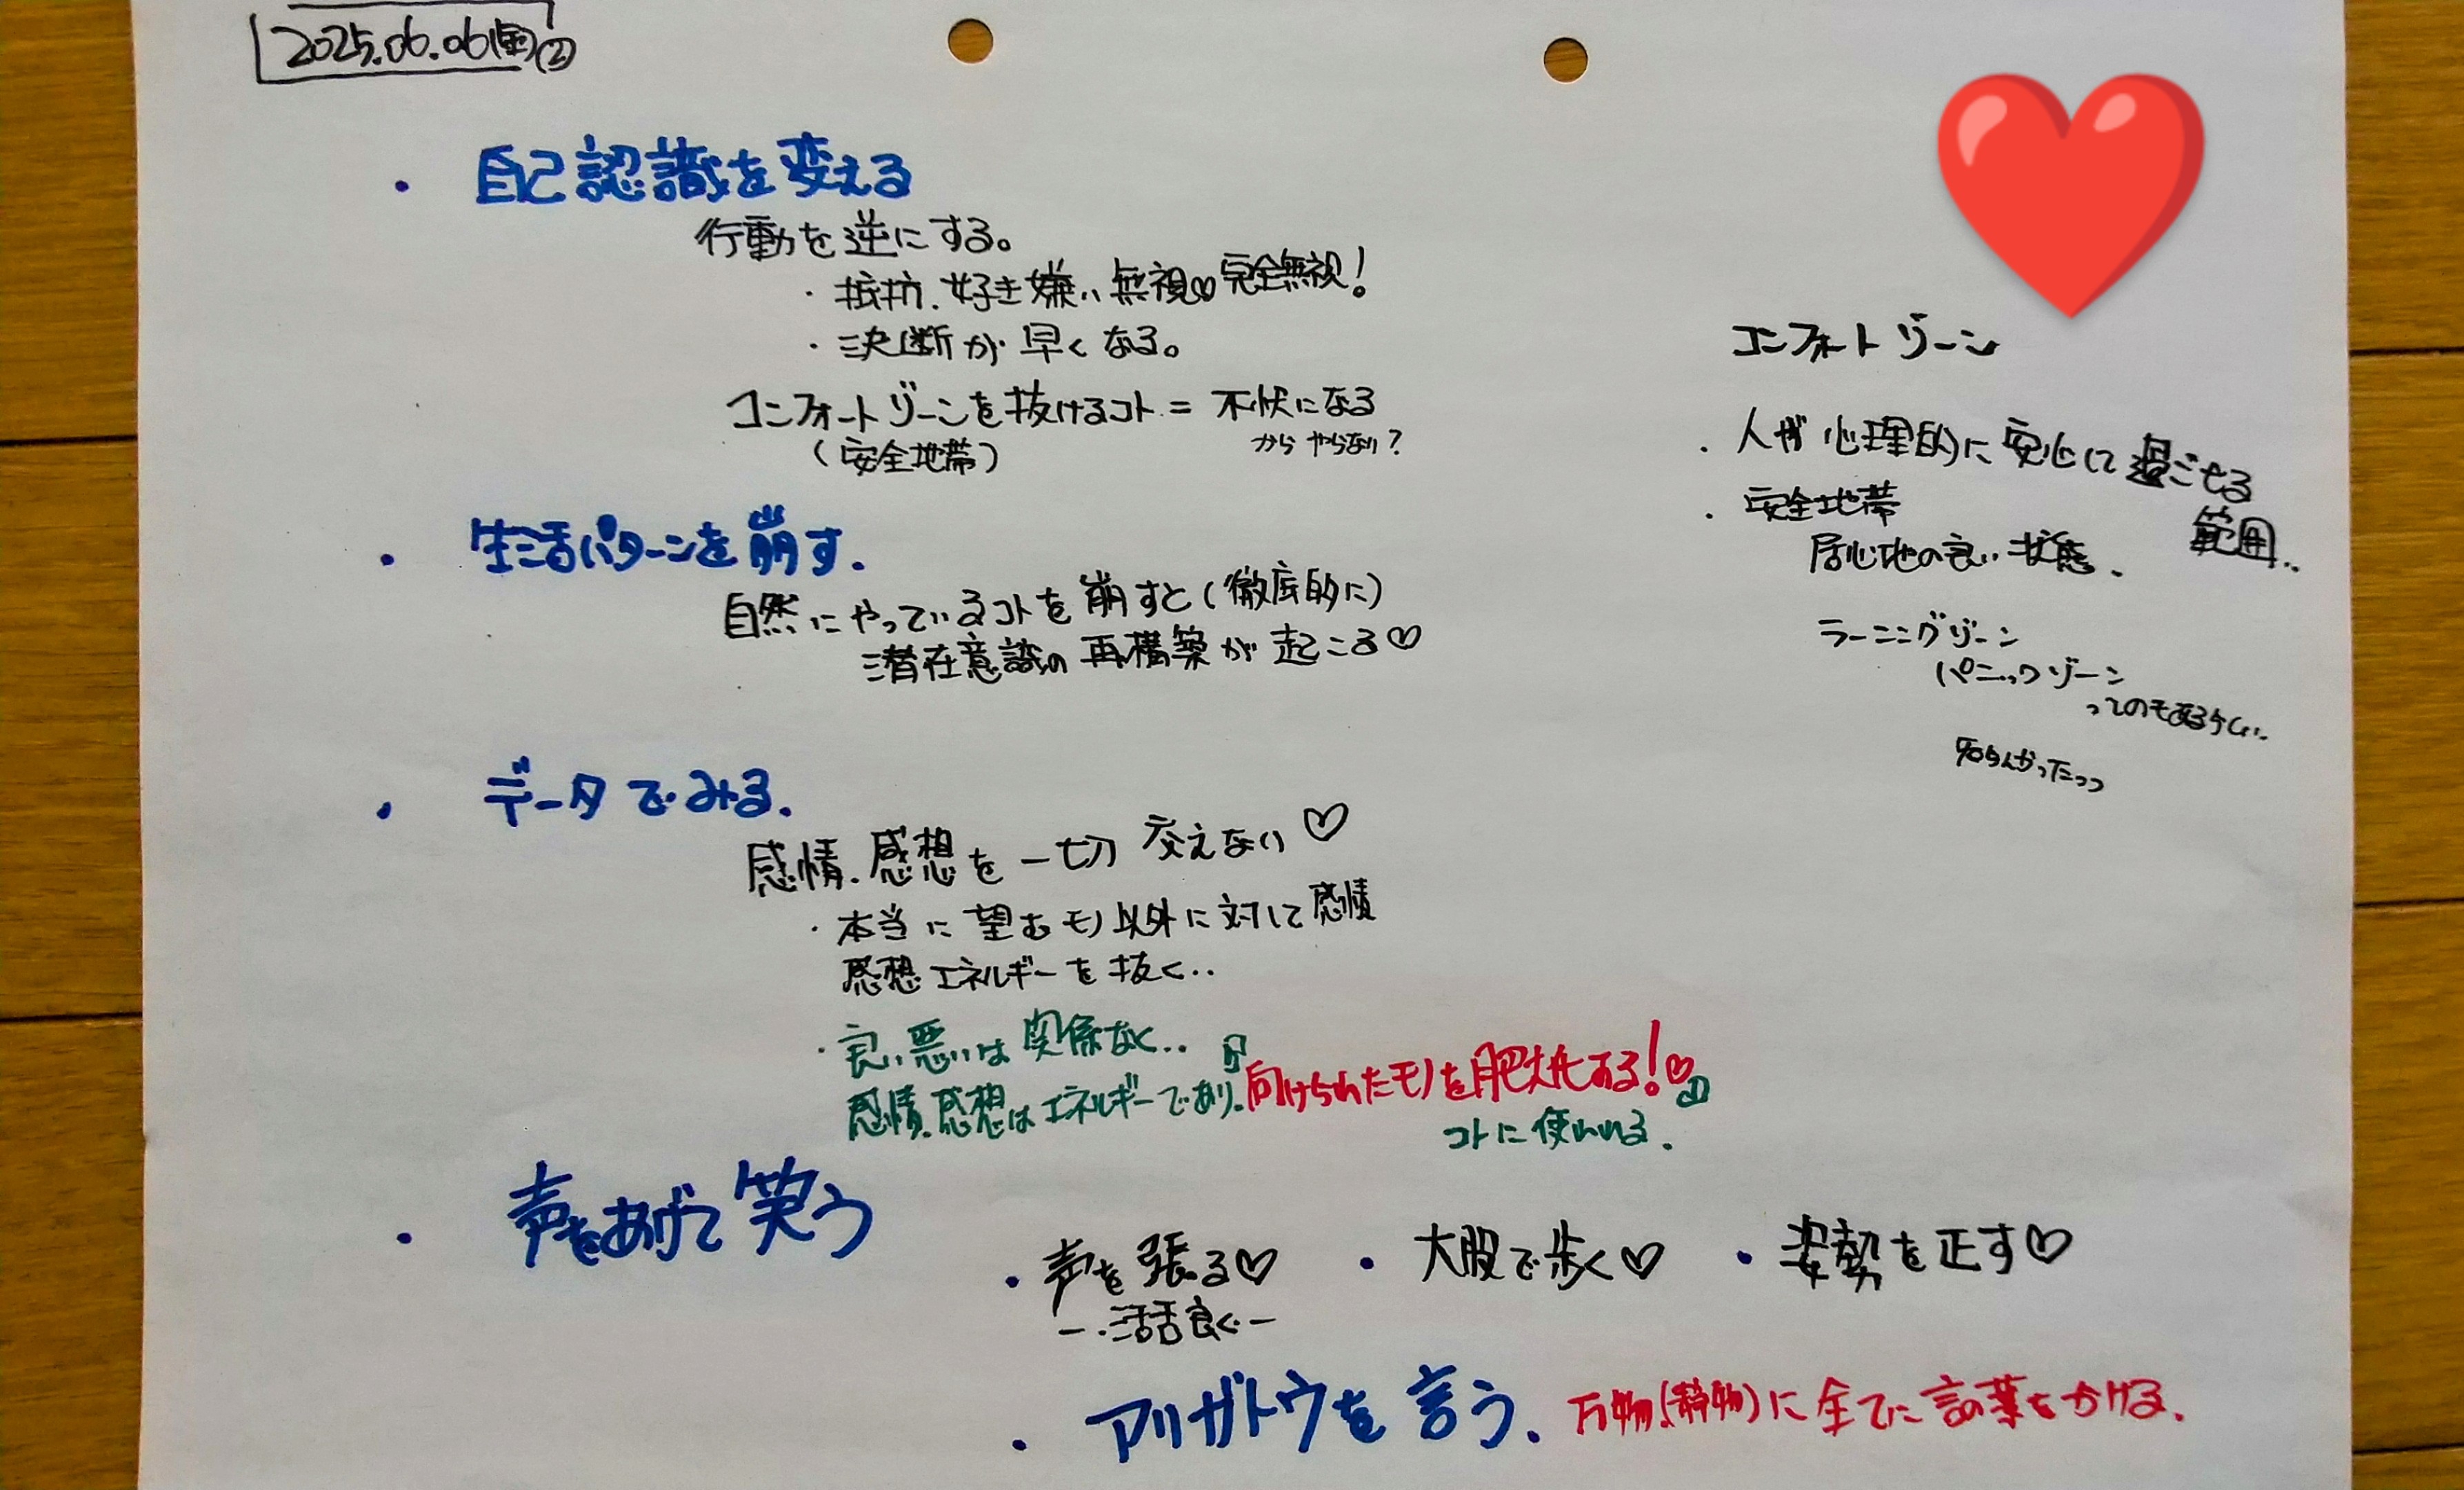 2025.06.06(金)②
・自己認識を変える
行動を逆にする。
・抵抗.好き嫌い無視♡完全無視!
・決断が早くなる。
コンフォートゾーンを抜けるコト=不快になる
(安全地帯)
からやらない?
・生活パターンを崩す.
自然にやっているコトを崩すと(徹底的に)
潜在意識の再構築が起こる♡
・データでみる.
感情.感想を一切交えない♡
・本当に望むモノ以外に対して感情
感想エネルギーを抜く..
・良い悪いは関係なく..
感情.感想はエネルギーであり.『向けられたモノを肥大化する!♡』
コトに使われる.
・声をあげて笑う
・声を張る♡ ・大股で歩く♡ ・姿勢を正す♡
ー.活舌良く.ー
・アリガトウを言う. 万物.(静物)に全てに言葉をかける.
コンフォートゾーン
・人が心理的に安心して過ごせる
範囲..
・安全地帯
居心地の良い状態.
ラーニングゾーン
パニックゾーン
ってのもあるらしい..
知らんかったっっ